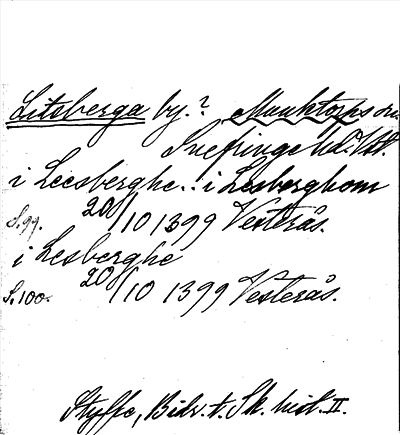 Litsberga by.? Munktorps sn.
Snefringe hd. Vtl.
i Leesberghe.. i Lesberghom
S.99. 20/10 1399 Vesterås.
i Lesberghe
S.100. 20/10 1399 Vesterås.
Styffe, Bidr. t. Sk. hist. II.